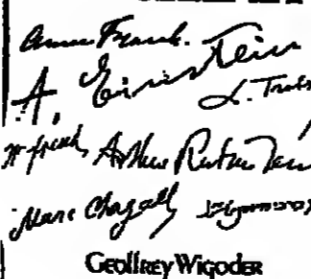 Anne Frank.
A. Einstein
L. Trots
Arthur Rubinstein
Marc Chagall
Geoffrey Wigoder